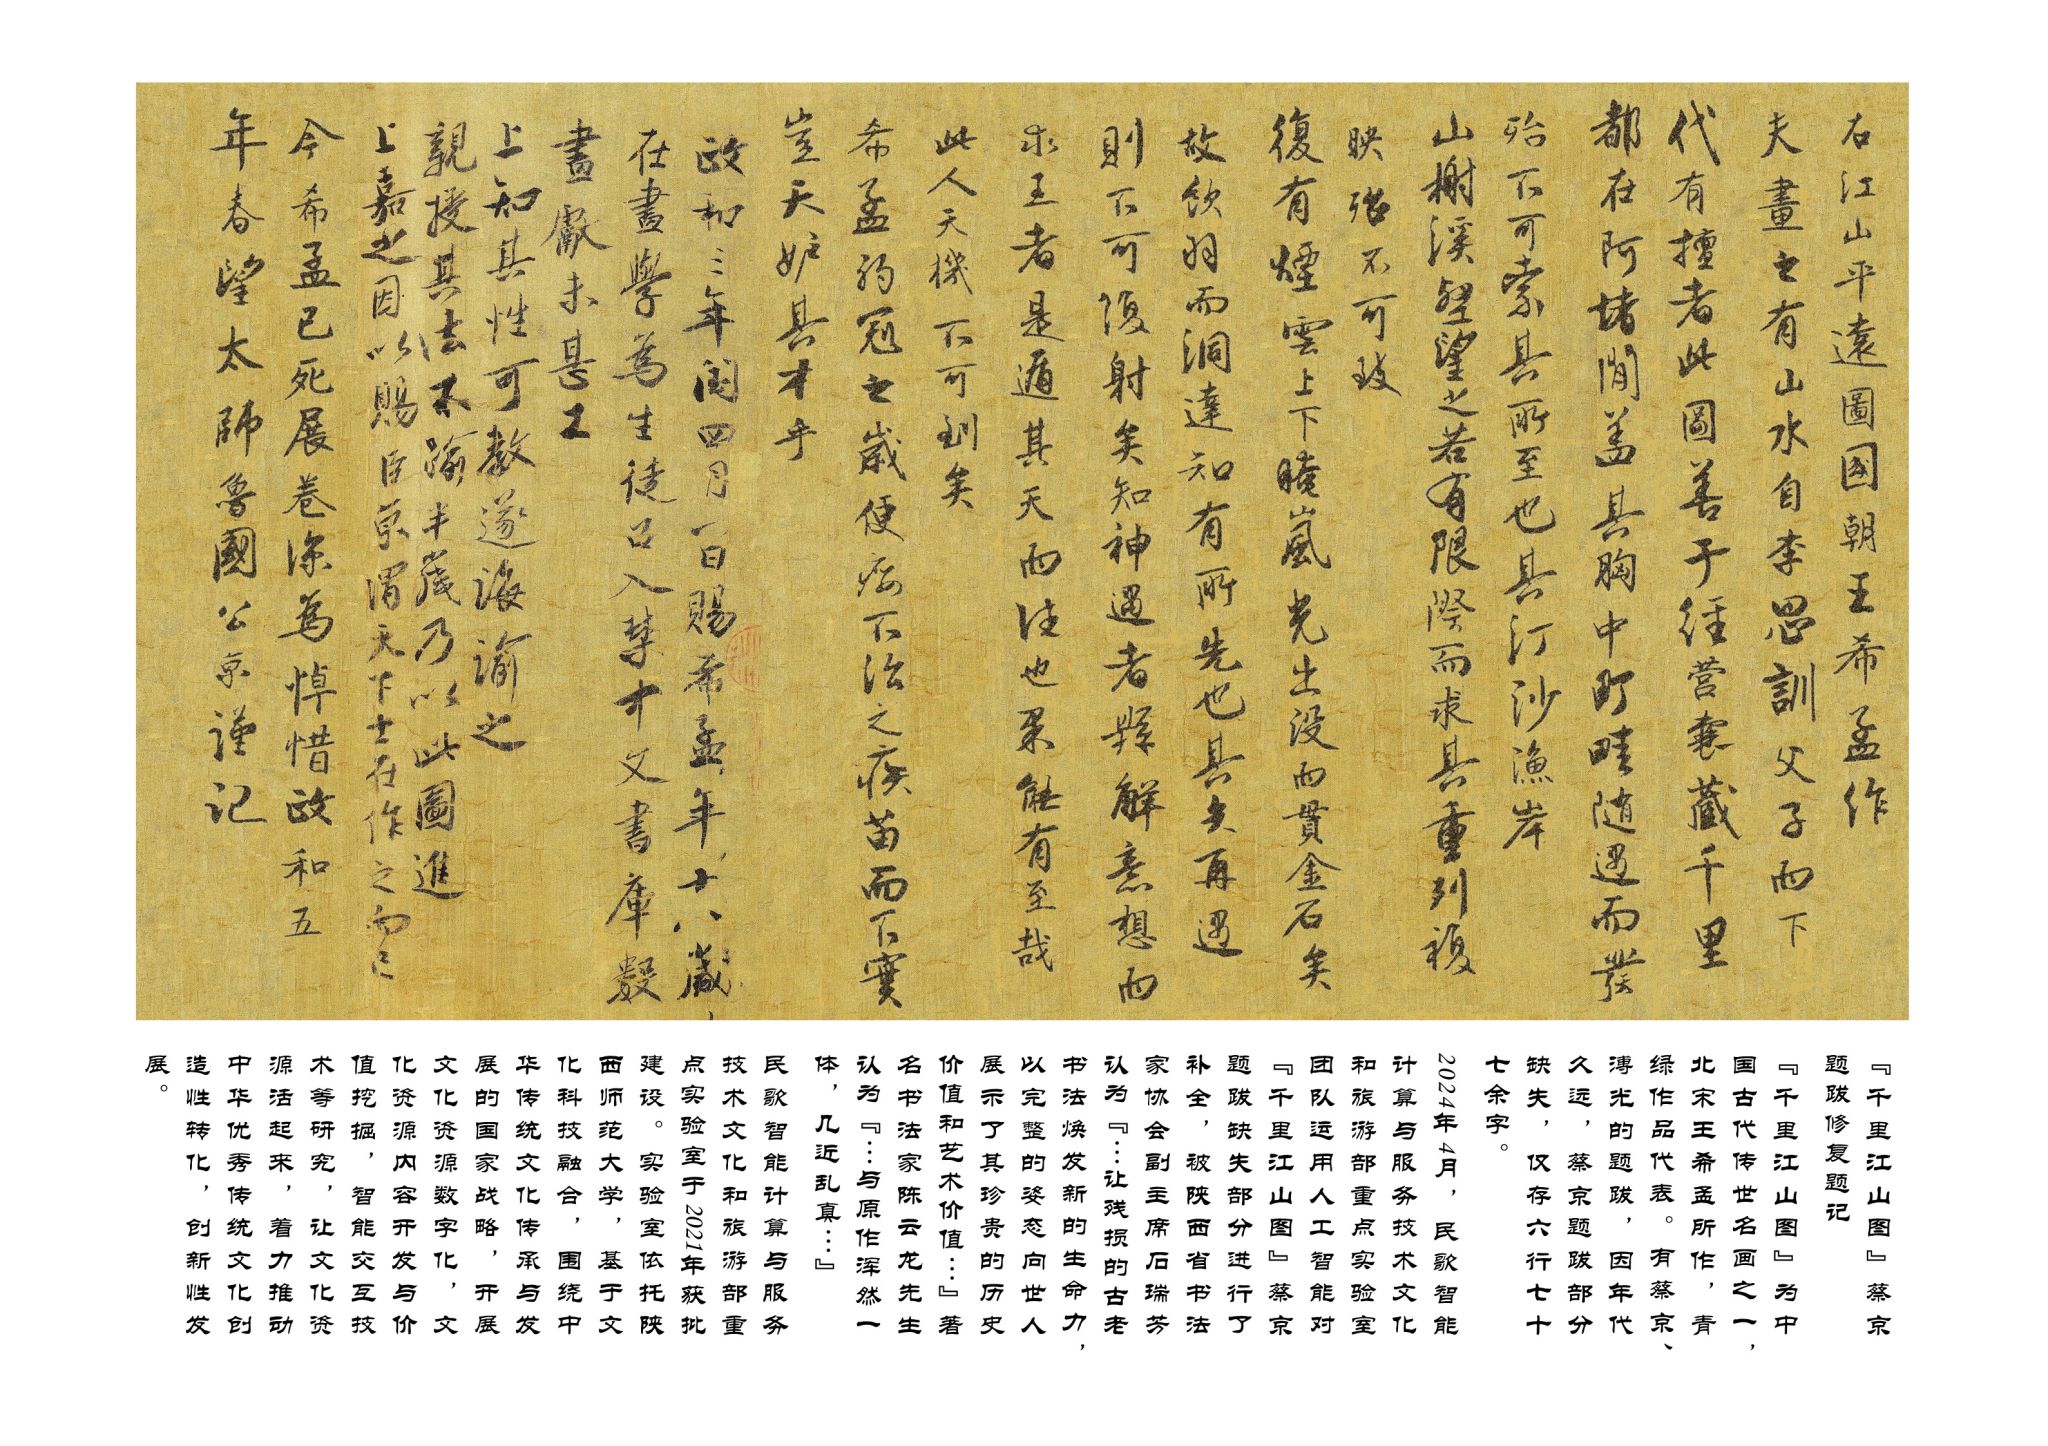 右江山平遠圖國朝王希孟作
夫畫之有山水自李思訓父子而下
代有擅者此圖善于經營囊藏千里
都在阿堵間蓋其胸中町畦随遇而發
殆不可索其所至也其汀沙漁岸
山榭溪壑望之若有限際而求其重列複
映張不可
復有煙雲上下晻嵐光出没而貫金石矣
故飲羽而洞達知有所先也其矢再遇
則不可復射矣知神遇者縣解意想而
求王者是遁其天而往也果能有至哉
此人天機不可到矣
希孟弱冠之歲便痾不治之疾苗而不實
豈天妒其才乎
政和三年閏四月一日賜希孟年十八歲
在畫學為生徒召入禁中文書庫數
畫獻未甚工
上知其性可教遂誨諭之
親授其法不踰半歲乃以此圖進
上嘉之因以賜臣京謂天下士在作之而已
今希孟已死展卷深為悼惜政和五
年春望太師魯國公京謹記
『千里江山图』蔡京
题跋修复题记
『千里江山图』为中
国古代传世名画之一，
北宋王希孟所作，青
绿作品代表。有蔡京、
溥光的题跋，因年代
久远，蔡京题跋部分
缺失，仅存六行七十
七余字。
2024年4月，民歌智能
计算与服务技术文化
和旅游部重点实验室
团队运用人工智能对
『千里江山图』蔡京
题跋缺失部分进行了
补全，被陕西省书法
家协会副主席石瑞芳
认为『…让残损的古老
书法焕发新的生命力，
以完整的姿态向世人
展示了其珍贵的历史
价值和艺术价值…』著
名书法家陈云龙先生
认为『…与原作浑然一
体，几近乱真…』
民歌智能计算与服务
技术文化和旅游部重
点实验室于2021年获批
建设。实验室依托陕
西师范大学，基于文
化科技融合，围绕中
华传统文化传承与发
展的国家战略，开展
文化资源数字化，文
化资源内容开发与价
值挖掘，智能交互技
术等研究，让文化资
源活起来，着力推动
中华优秀传统文化创
造性转化，创新性发
展。